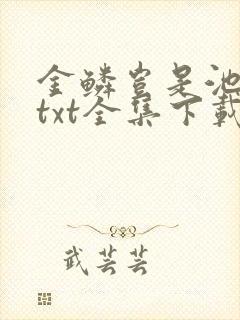 金鳞岂是池
txt全集下载
武芸芸